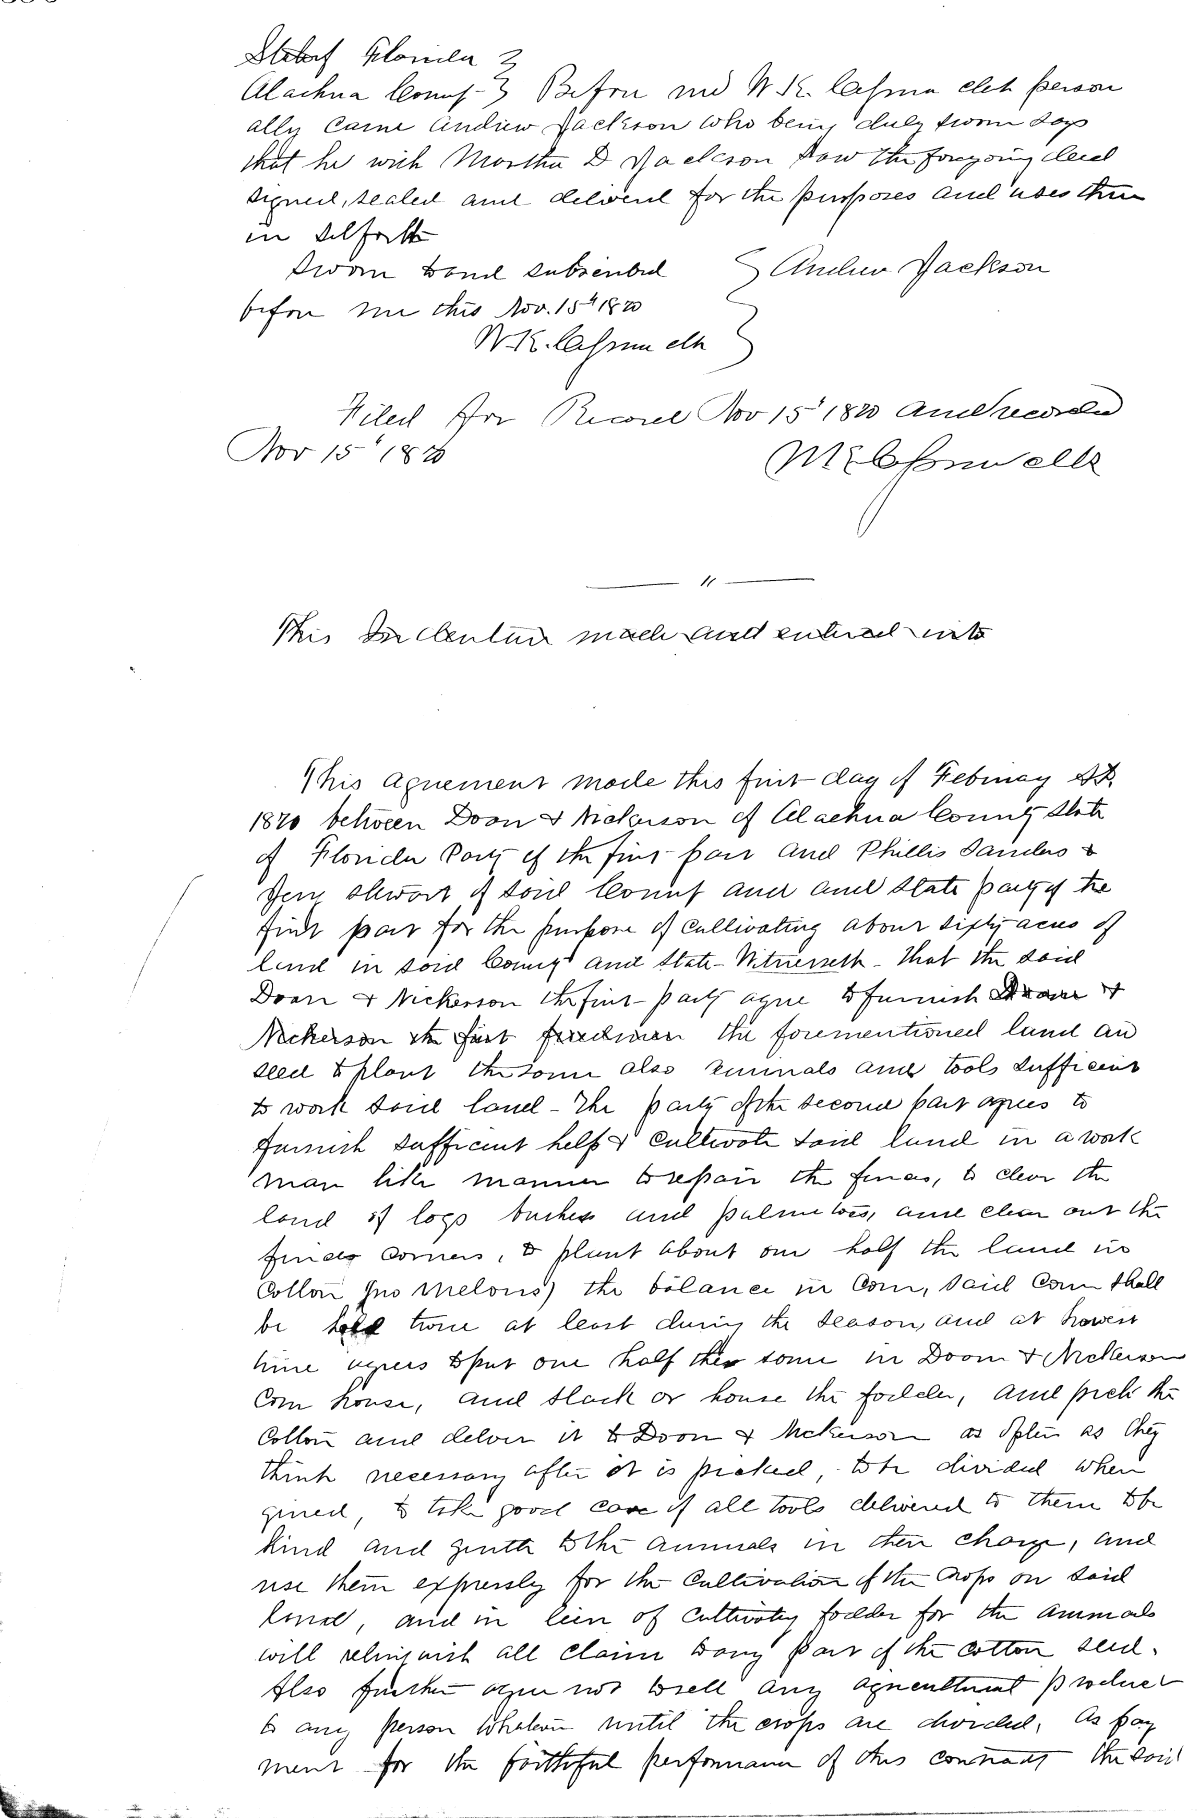 State of Florida }
Alachua County } Before me W. K. Cessna clerk person
ally came Andrew Jackson who being duly sworn says
that he with Martha D Jackson saw the foregoing deed
signed, sealed and delivered for the purposes and uses there
in set forth
Sworn to and subscribed } Andrew Jackson
before me this Nov. 15th 1870
W. K. Cessna clk }
Filed for Record Nov 15th 1870 and recorded
Nov 15th 1870
W K Cessna clk
— " —
This Indenture made and entered into
This agreement made this first day of February AD.
1870 between Doan & Nickerson of Alachua County State
of Florida Party of the first part and Phillis Sanders &
Jery Stewart of said County and and State party of the
first part for the purpose of cultivating about sixty acres of
land in said County and State - Witnesseth - that the said
Doan & Nickerson the first party agree to furnish Doan &
Nickerson the first freedman the forementioned land an
seed to plant the same also animals and tools sufficient
to work said land - The party of the second part agrees to
furnish sufficient help & cultivate said land in a work
man like manner to repair the fences, to clear the
land of logs bushes and palmetoes, and clear out the
fences corners, to plant about one half the land in
Cotton (no Melons) the balance in Corn, said Corn shall
be hoed twice at least during the season, and at harvest
time agrees to put one half the same in Doan & Nickerson
Corn house, and stack or house the fodder, and pick the
Cotton and deliver it to Doan & Nickerson as often as they
think necessary after it is picked, to be divided when
gined, to take good care of all tools delivered to them to be
kind and gentle to the animals in their charge, and
use them expressly for the Cultivation of the crops on said
land, and in lieu of cultivating fodder for the animals
will relinquish all claim to any part of the cotton seed.
Also further agree not to sell any agricultural product
to any person whatever until the crops are divided, As pay
ment for the faithful performance of this contract the said